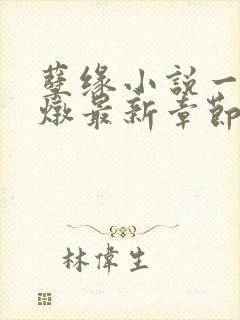 孽缘小説一
燉最新章節
林偉生